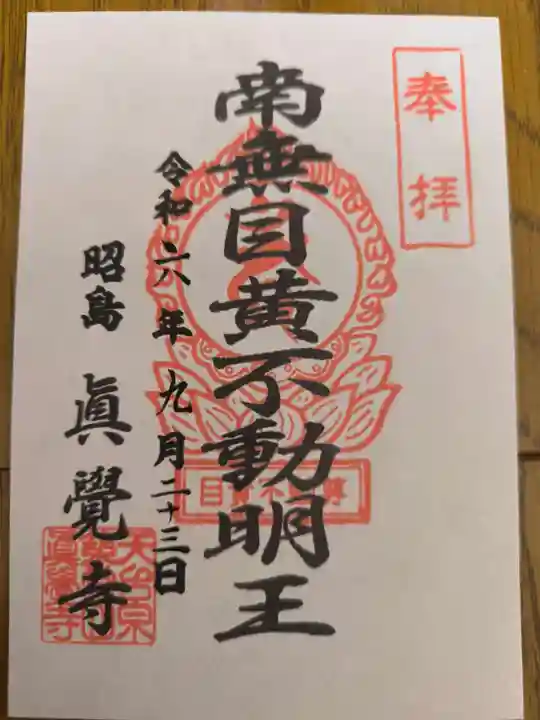 奉拝
南無目黄不動明王
令和六年九月二十三日
昭島
眞覺寺
目黄不動尊